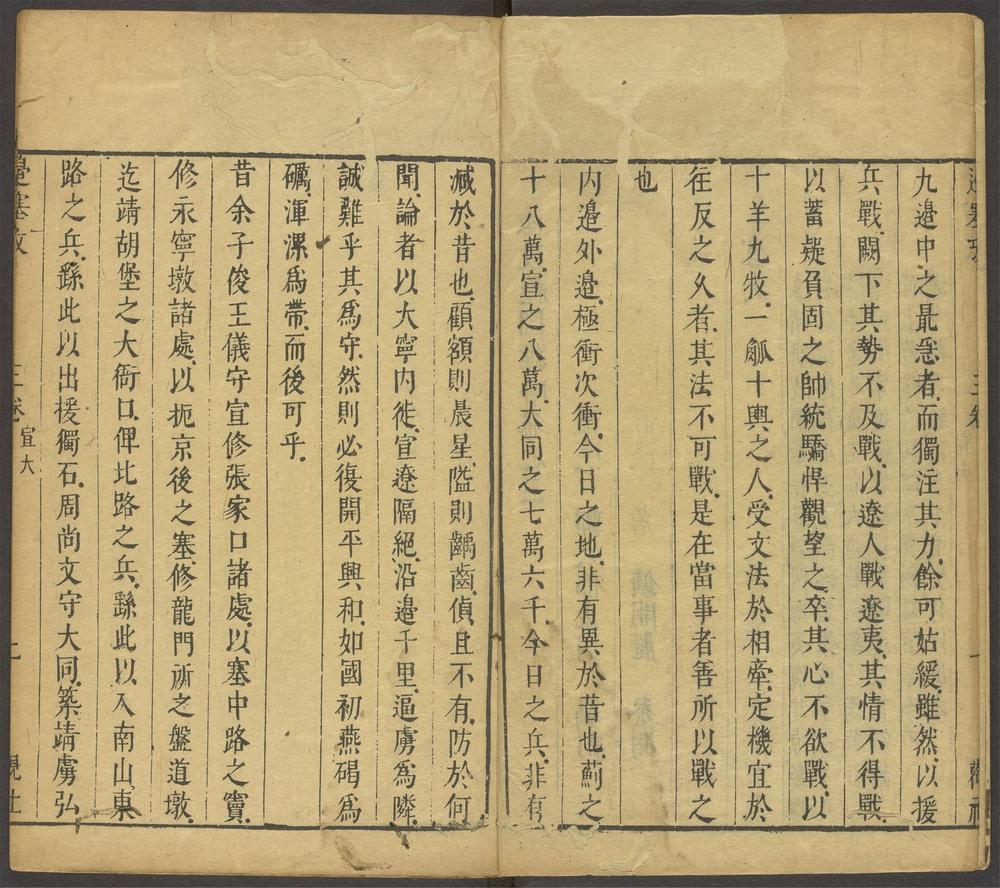 九邉中之最急者而獨注其力餘可姑緩雖然以援
兵戰闕下其勢不及戰以遼人戰遼夷其情不得戰
以蓄疑負固之帥統驕悍觀望之卒其心不欲戰以
十羊九牧一觚十輿之人受文法於相牽定機宜於
徃反之久者其法不可戰是在當事者善所以戰之
也
内邉外邉極衝次衝今日之地非有異於昔也薊之
十八萬宣之八萬大同之七萬六千今日之兵非有
減於昔也顧額則晨星隘則齲齒偵且不有防於何
聞論者以大寧内徙宣遼隔絕沿邉千里逼虜為隣
誠難乎其為守然則必復開平興和如國初燕碣為
礪渾漯為帶而後可乎
昔余子俊王儀守宣修張家口諸處以塞中路之竇
修永寧墩諸處以扼京後之塞修龍門所之盤道墩
迄靖胡堡之大衙口俾北路之兵繇此以入南山東
路之兵繇此以出援獨石周尚文守大同築靖虜弘
邉塞攷
三卷
宣大